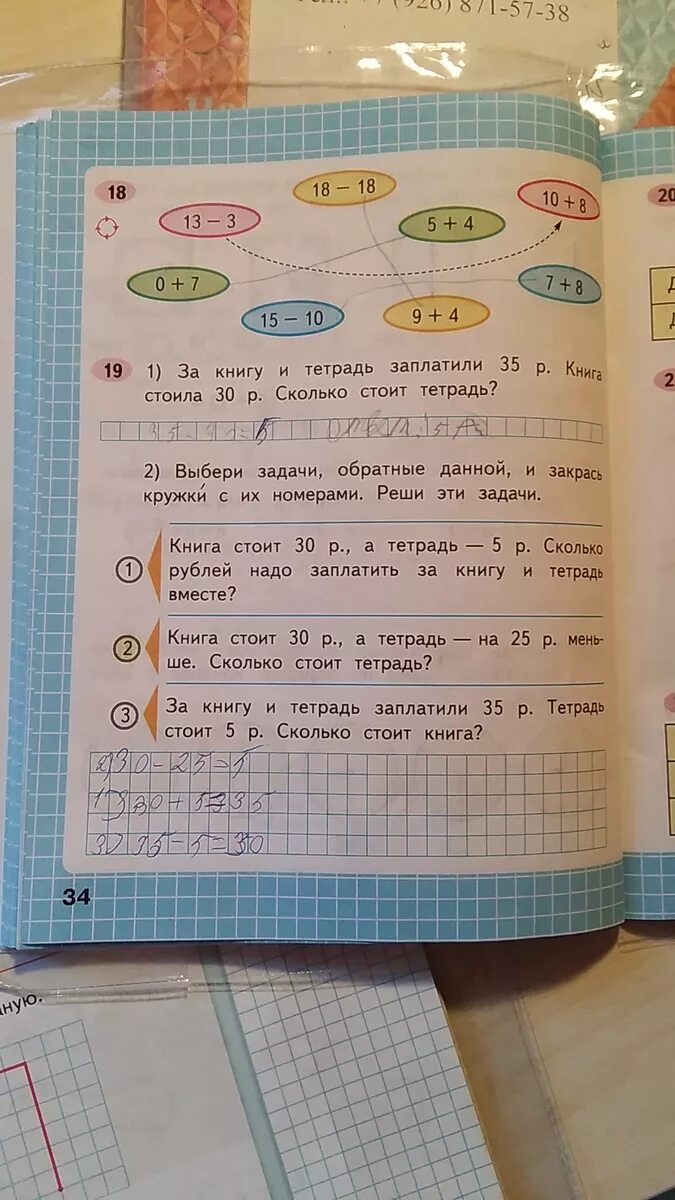 (926) 871-57-38
18
18 − 18
10 + 8
13 − 3
5 + 4
0 + 7
7 + 8
15 − 10
9 + 4
19 1) За книгу и тетрадь заплатили 35 р. Книга
стоила 30 р. Сколько стоит тетрадь?
35-30=5
2) Выбери задачи, обратные данной, и закрась
кружки́ с их номерами. Реши эти задачи.
1
Книга стоит 30 р., а тетрадь — 5 р. Сколько
рублей надо заплатить за книгу и тетрадь
вместе?
2
Книга стоит 30 р., а тетрадь — на 25 р. мень-
ше. Сколько стоит тетрадь?
3
За книгу и тетрадь заплатили 35 р. Тетрадь
стоит 5 р. Сколько стоит книга?
2)30-25=5
1)30+5=35
3) 35-5=30
34
20
2